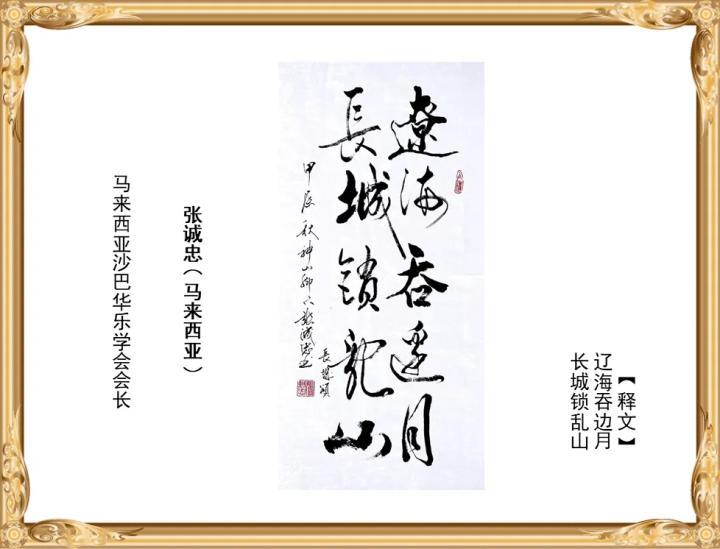 【释文】
辽海吞边月
长城锁乱山
遼海吞邊月
長城鎖亂山
甲辰秋神山腳下
張誠忠
张诚忠（马来西亚）
马来西亚沙巴华乐学会会长